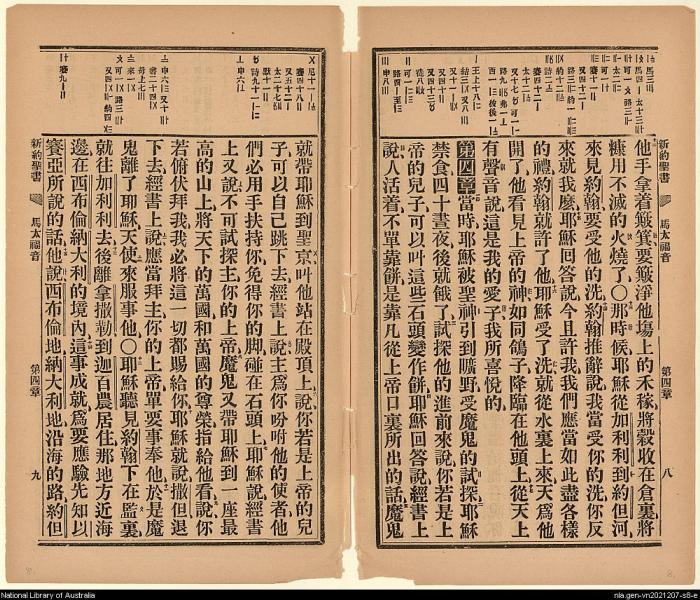 新約聖書
馬太福音
第四章
八
他手拿着簸箕要簸淨他塲上的禾稼將穀收在倉裏將
糠用不滅的火燒了〇那時候耶穌從加利利到約但河
來見約翰要受他的洗約翰推辭說我當受你的洗你反
來就我麽耶穌回答說今且許我我們應當如此盡各樣
的禮約翰就許了他耶穌受了洗就從水裏上來天爲他
開了他看見上帝的神如同鴿子降臨在他頭上從天上
有聲音說這是我的愛子我所喜悅的
第四章當時耶穌被聖神引到曠野受魔鬼的試探
禁食四十晝夜後就餓了試探他的進前來說你若是上
帝的兒子可以叫這些石頭變作餅耶穌回答說經書上
說人活着不單靠餅是靠凡從上帝口裏所出的話魔鬼
就帶耶穌到聖京叫他站在殿頂上說你若是上帝的兒
子可以自己跳下去經書上說主爲你吩咐他的使者他
們必用手扶持你免得你的脚碰在石頭上耶穌說經書
上又說不可試探主你的上帝魔鬼又帶耶穌到一座最
高的山上將天下的萬國和萬國的尊榮指給他看說你
若俯伏拜我我必將這一切都賜給你耶穌就說撒但退
下去經書上說應當拜主你的上帝單要事奉他於是魔
鬼離了耶穌天使來服事他〇耶穌聽見約翰下在監裏
就往加利利去後離拿撒勒到迦百農居住那地方近海
邊在西布倫納大利的境內這事成就爲要應驗先知以
賽亞所說的話他說西布倫地納大利地沿海的路約但
新約聖書
馬太福音
第四章
九
National Library of Australia
nla.gen-vn2021207-s8-e